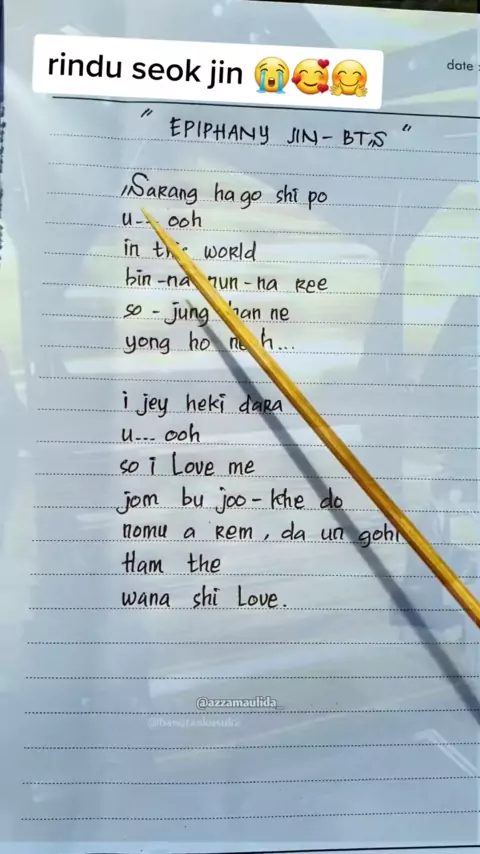 rindu seok jin 😭🥰🤗
date :
" EPIPHANY JIN - BTS "
Sarang ha go shi po
u--- ooh
in this world
bin-na nun-na Ree
so - jung han ne
yong ho
i jey heki daRa
u--- ooh
so i Love me
jom bu joo - khe do
nomu a Rem, da un gohl
Ham the
wana shi Love.
@azzamaulida_